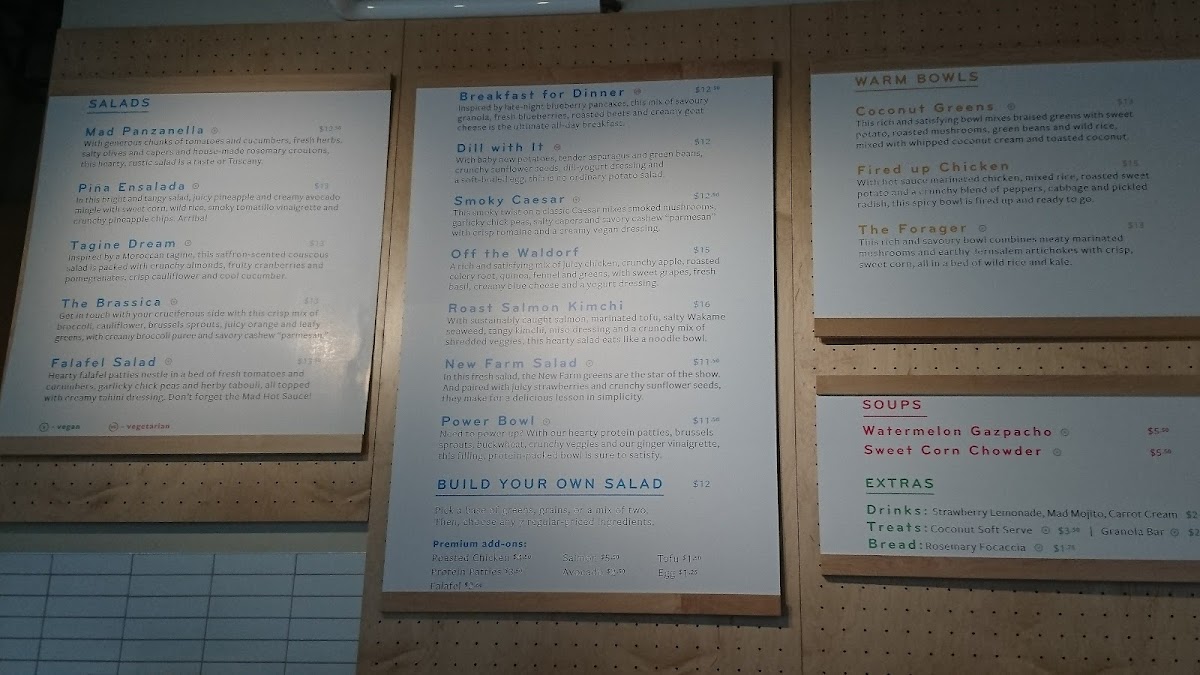 SALADS
Mad Panzanella
With generous chunks of tomatoes and cucumbers, fresh herbs,
salty olives and capers and house-made rosemary croutons,
this hearty, rustic salad is a taste of Tuscany.
Pina Ensalada $13
In this bright and tangy salad, juicy pineapple and creamy avocado
mingle with sweet corn, wild rice, smoky tomatillo vinaigrette and
crunchy pineapple chips. Arriba!
Tagine Dream
Inspired by a Moroccan tagine, this saffron-scented couscous
salad is packed with crunchy almonds, fruity cranberries and
pomegranates, crisp cauliflower and cool cucumber.
The Brassica
Get in touch with your cruciferous side with this crisp mix of
broccoli, cauliflower, brussels sprouts, juicy orange and leafy
greens, with creamy broccoli puree and savory cashew "parmesan".
Falafel Salad
Hearty falafel patties nestle in a bed of fresh tomatoes and
cucumbers, garlicky chick peas and herby tabouli, all topped
with creamy tahini dressing. Don't forget the Mad Hot Sauce!
- vegan - vegetarian
Breakfast for Dinner
Inspired by late-night blueberry pancakes, this mix of savoury
granola, fresh blueberries, roasted beets and creamy goat
cheese is the ultimate all-day breakfast.
Dill with It $12
With baby new potatoes, tender asparagus and green beans,
crunchy sunflower seeds, dill-yogurt dressing and
a soft-boiled egg, this is no ordinary potato salad.
Smoky Caesar $12.50
This smoky twist on a classic Caesar mixes smoked mushrooms,
garlicky chick peas, salty capers and savory cashew "parmesan"
with crisp romaine and a creamy vegan dressing.
Off the Waldorf $15
A rich and satisfying mix of juicy chicken, crunchy apple, roasted
celery root, quinoa, fennel and greens, with sweet grapes, fresh
basil, creamy blue cheese and a yogurt dressing.
Roast Salmon Kimchi $16
With sustainably caught salmon, marinated tofu, salty Wakame
seaweed, tangy kimchi, miso dressing and a crunchy mix of
shredded veggies, this hearty salad eats like a noodle bowl.
New Farm Salad $11.50
In this fresh salad, the New Farm greens are the star of the show.
And paired with juicy strawberries and crunchy sunflower seeds,
they make for a delicious lesson in simplicity.
Power Bowl $11.50
Need to power up? With our hearty protein patties, brussels
sprouts, buckwheat, crunchy veggies and our ginger vinaigrette,
this filling, protein-packed bowl is sure to satisfy.
BUILD YOUR OWN SALAD $12
Pick a base of greens, grains, or a mix of two.
Then, choose any 7 regular-priced ingredients.
Premium add-ons:
Roasted Chicken Salmon Tofu
Protein Patties Avocado Egg
Falafel
WARM BOWLS
Coconut Greens
This rich and satisfying bowl mixes braised greens with sweet
potato, roasted mushrooms, green beans and wild rice,
mixed with whipped coconut cream and toasted coconut.
Fired up Chicken $15
With hot sauce marinated chicken, mixed rice, roasted sweet
potato and a crunchy blend of peppers, cabbage and pickled
radish, this spicy bowl is fired up and ready to go.
The Forager
This rich and savoury bowl combines meaty marinated
mushrooms and earthy Jerusalem artichokes with crisp,
sweet corn, all in a bed of wild rice and kale.
SOUPS
Watermelon Gazpacho $5.50
Sweet Corn Chowder $5.50
EXTRAS
Drinks: Strawberry Lemonade, Mad Mojito, Carrot Cream $2
Treats: Coconut Soft Serve | Granola Bar $2
Bread: Rosemary Focaccia